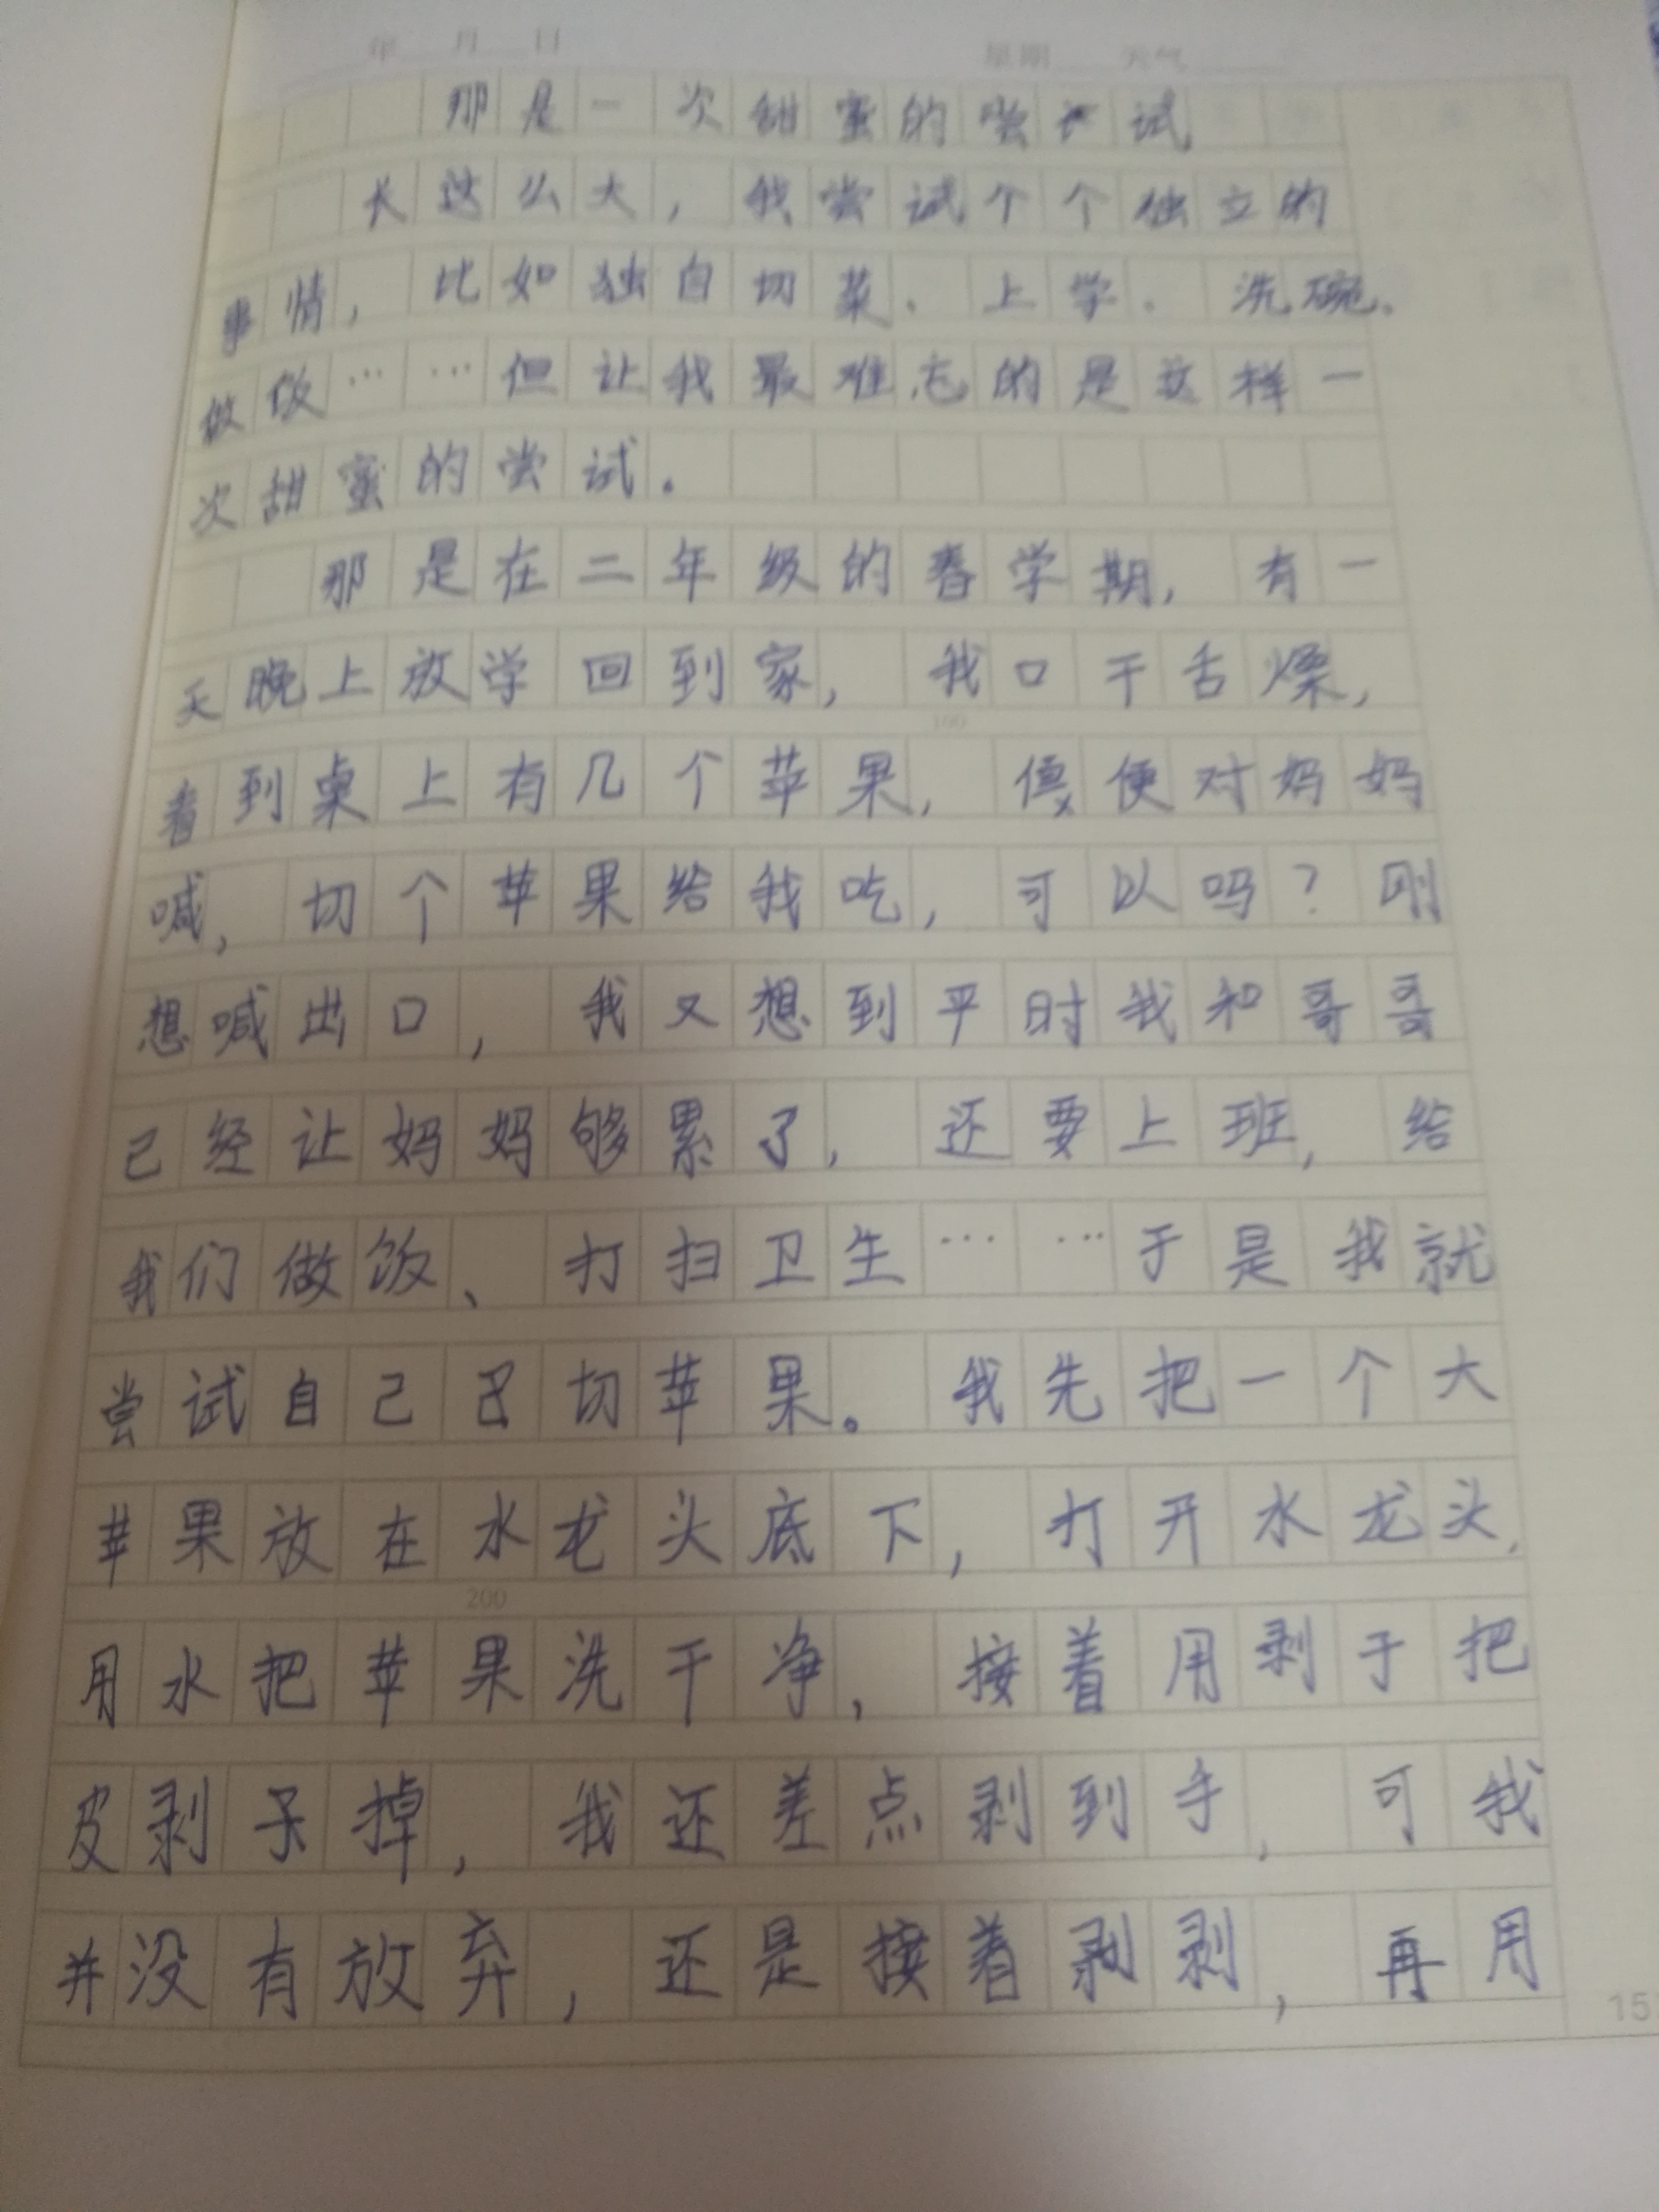 年 月 日 星期 天气
那是一次甜蜜的尝试
长这么大，我尝试个个独立的
事情，比如独自切菜、上学、洗碗、
做饭……但让我最难忘的是这样一
次甜蜜的尝试。
那是在二年级的春学期，有一
天晚上放学回到家，我口干舌燥，
100
看到桌上有几个苹果，便对妈妈
喊，切个苹果给我吃，可以吗？刚
想喊出口，我又想到平时我和哥哥
已经让妈妈够累了，还要上班，给
我们做饭、打扫卫生……于是我就
尝试自己切苹果。我先把一个大
苹果放在水龙头底下，打开水龙头，
200
用水把苹果洗干净，接着用剥子把
皮剥子掉，我还差点剥到手，可我
并没有放弃，还是接着剥剥，再用
15